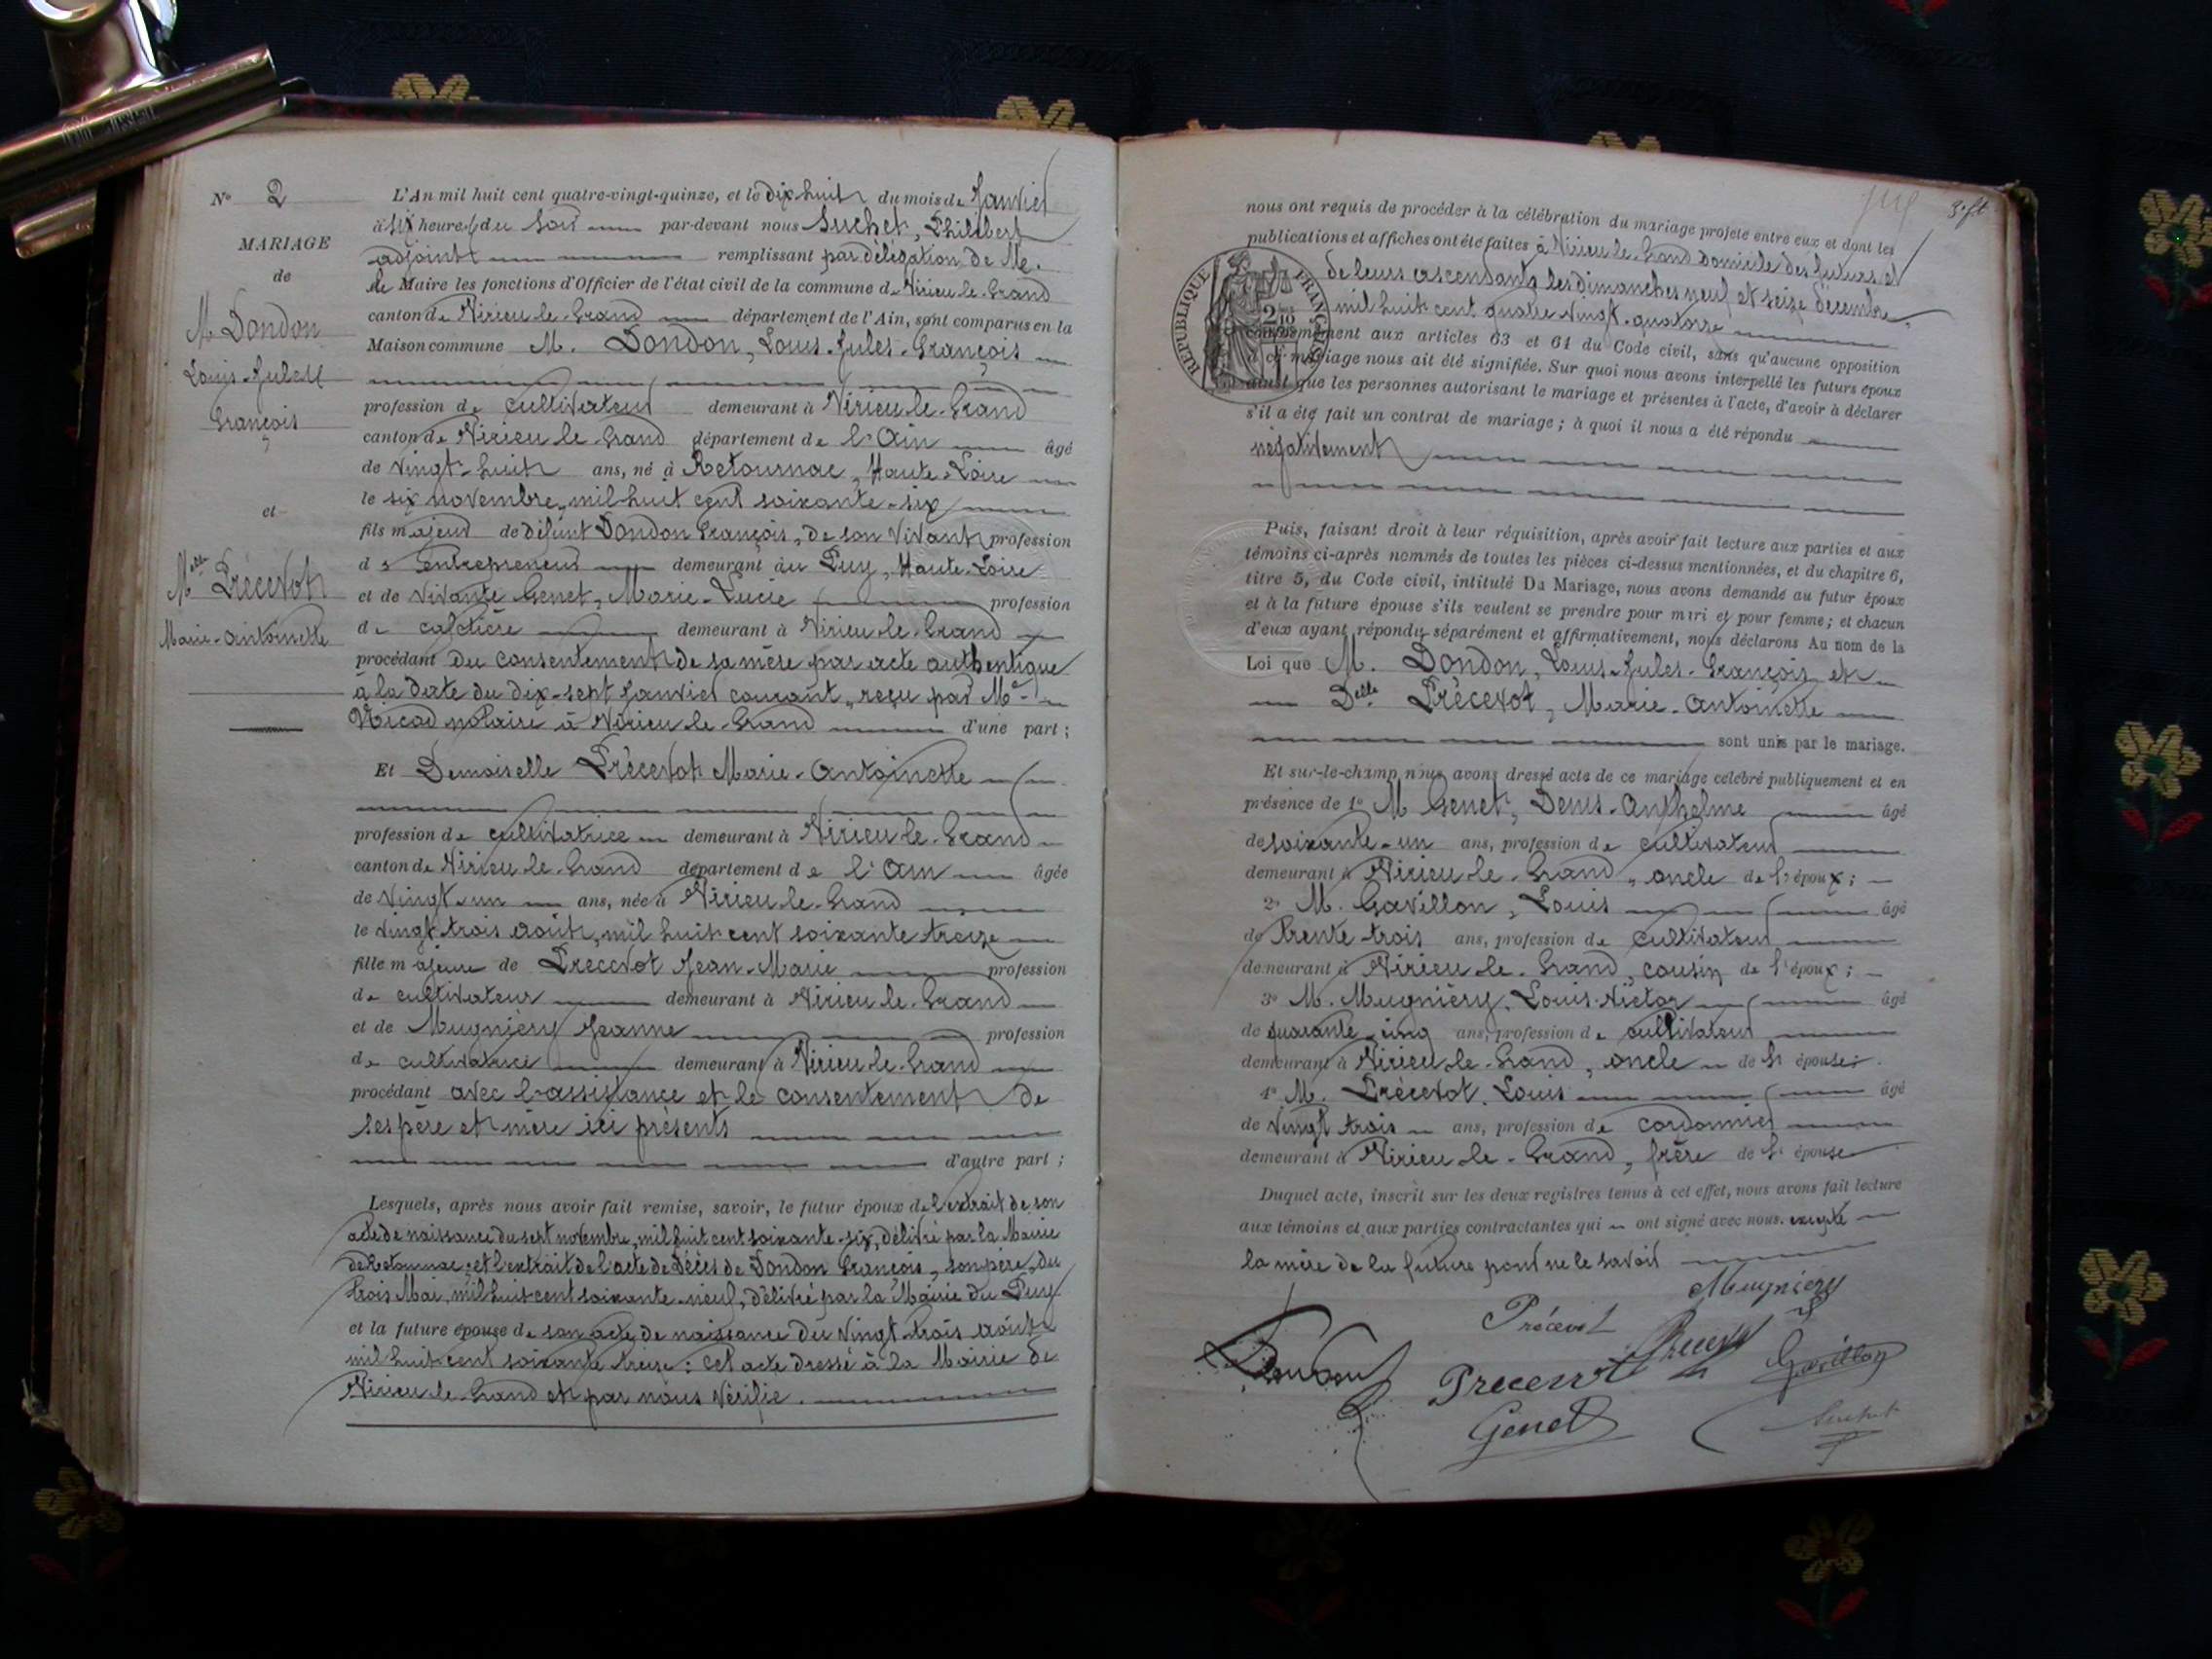 N° 2
MARIAGE
de
M. Dondon
Louis-Jules
François
et
Melle Précevot
Marie-Antoinette
L'An mil huit cent quatre-vingt-quinze, et le dix huit du mois de Janvier
à six heures du soir par-devant nous Suchet, Philibert
adjoint remplissant par délégation de M.
le Maire les fonctions d'Officier de l'état civil de la commune de Virieu-le-Grand
canton de Virieu-le-Grand département de l'Ain, sont comparus en la
Maison commune M. Dondon, Louis-Jules-François
profession de cultivateur demeurant à Virieu-le-Grand
canton de Virieu-le-Grand département de l'Ain âgé
de vingt-huit ans, né à Retournac, Haute-Loire
le six novembre, mil huit cent soixante-six
fils majeur de défunt Dondon François, de son vivant profession
de Entrepreneur demeurant au Puy, Haute-Loire
et de vivante Genet, Marie-Lucie profession
de cafetière demeurant à Virieu-le-Grand
procédant du consentement de sa mère par acte authentique
à la date du dix-sept Janvier courant, reçu par Me
notaire à Virieu-le-Grand d'une part ;
Et Demoiselle Précevot Marie-Antoinette
profession de cultivatrice demeurant à Virieu-le-Grand
canton de Virieu-le-Grand département de l'Ain âgée
de vingt-un ans, née à Virieu-le-Grand
le vingt trois août, mil huit cent soixante treize
fille majeure de Précevot Jean-Marie profession
de cultivateur demeurant à Virieu-le-Grand
et de Mugniéry Jeanne profession
de cultivatrice demeurant à Virieu-le-Grand
procédant avec l'assistance et le consentement de
ses père et mère ici présents
d'autre part ;
Lesquels, après nous avoir fait remise, savoir, le futur époux de l'extrait de son
acte de naissance du sept novembre, mil huit cent soixante-six, délivré par la Mairie
de Retournac ; et l'extrait de l'acte de décès de Dondon François, son père, du
trois Mai, mil huit cent soixante-neuf, délivré par la Mairie du Puy
et la future épouse de son acte de naissance du vingt-trois août
mil huit cent soixante treize : cet acte dressé à la Mairie de
Virieu-le-Grand et par nous vérifié.
nous ont requis de procéder à la célébration du mariage projeté entre eux et dont les
publications et affiches ont été faites à Virieu-le-Grand domicile des futurs et
de leurs ascendants les dimanches neuf et seize décembre
mil huit cent quatre vingt-quatorze
conformément aux articles 63 et 64 du Code civil, sans qu'aucune opposition
à ce mariage nous ait été signifiée. Sur quoi nous avons interpellé les futurs époux
ainsi que les personnes autorisant le mariage et présentes à l'acte, d'avoir à déclarer
s'il a été fait un contrat de mariage ; à quoi il nous a été répondu
négativement
RÉPUBLIQUE FRANÇAISE
Puis, faisant droit à leur réquisition, après avoir fait lecture aux parties et aux
témoins ci-après nommés de toutes les pièces ci-dessus mentionnées, et du chapitre 6,
titre 5, du Code civil, intitulé Du Mariage, nous avons demandé au futur époux
et à la future épouse s'ils veulent se prendre pour mari et pour femme ; et chacun
d'eux ayant répondu séparément et affirmativement, nous déclarons Au nom de la
Loi que M. Dondon, Louis-Jules-François et
Delle Précevot, Marie-Antoinette
sont unis par le mariage.
Et sur-le-champ nous avons dressé acte de ce mariage célébré publiquement et en
présence de 1° M Genet, Denis-Anthelme âgé
de soixante-un ans, profession de cultivateur
demeurant à Virieu-le-Grand, oncle de l'époux ;
2° M. Gavillon, Louis âgé
de trente-trois ans, profession de cultivateur
demeurant à Virieu-le-Grand, cousin de l'époux ;
3° M. Mugniéry, Louis-Victor âgé
de quarante-cinq ans, profession de cultivateur
demeurant à Virieu-le-Grand, oncle de l' épouse ;
4° M. Précevot, Louis âgé
de vingt trois ans, profession de cordonnier
demeurant à Virieu-le-Grand, frère de l' épouse
Duquel acte, inscrit sur les deux registres tenus à cet effet, nous avons fait lecture
aux témoins et aux parties contractantes qui ont signé avec nous. excepté
la mère de la future pour ne le savoir
Mugniéry
Précevot
Dondon
Precevot
Gavillon
Genet
Suchet